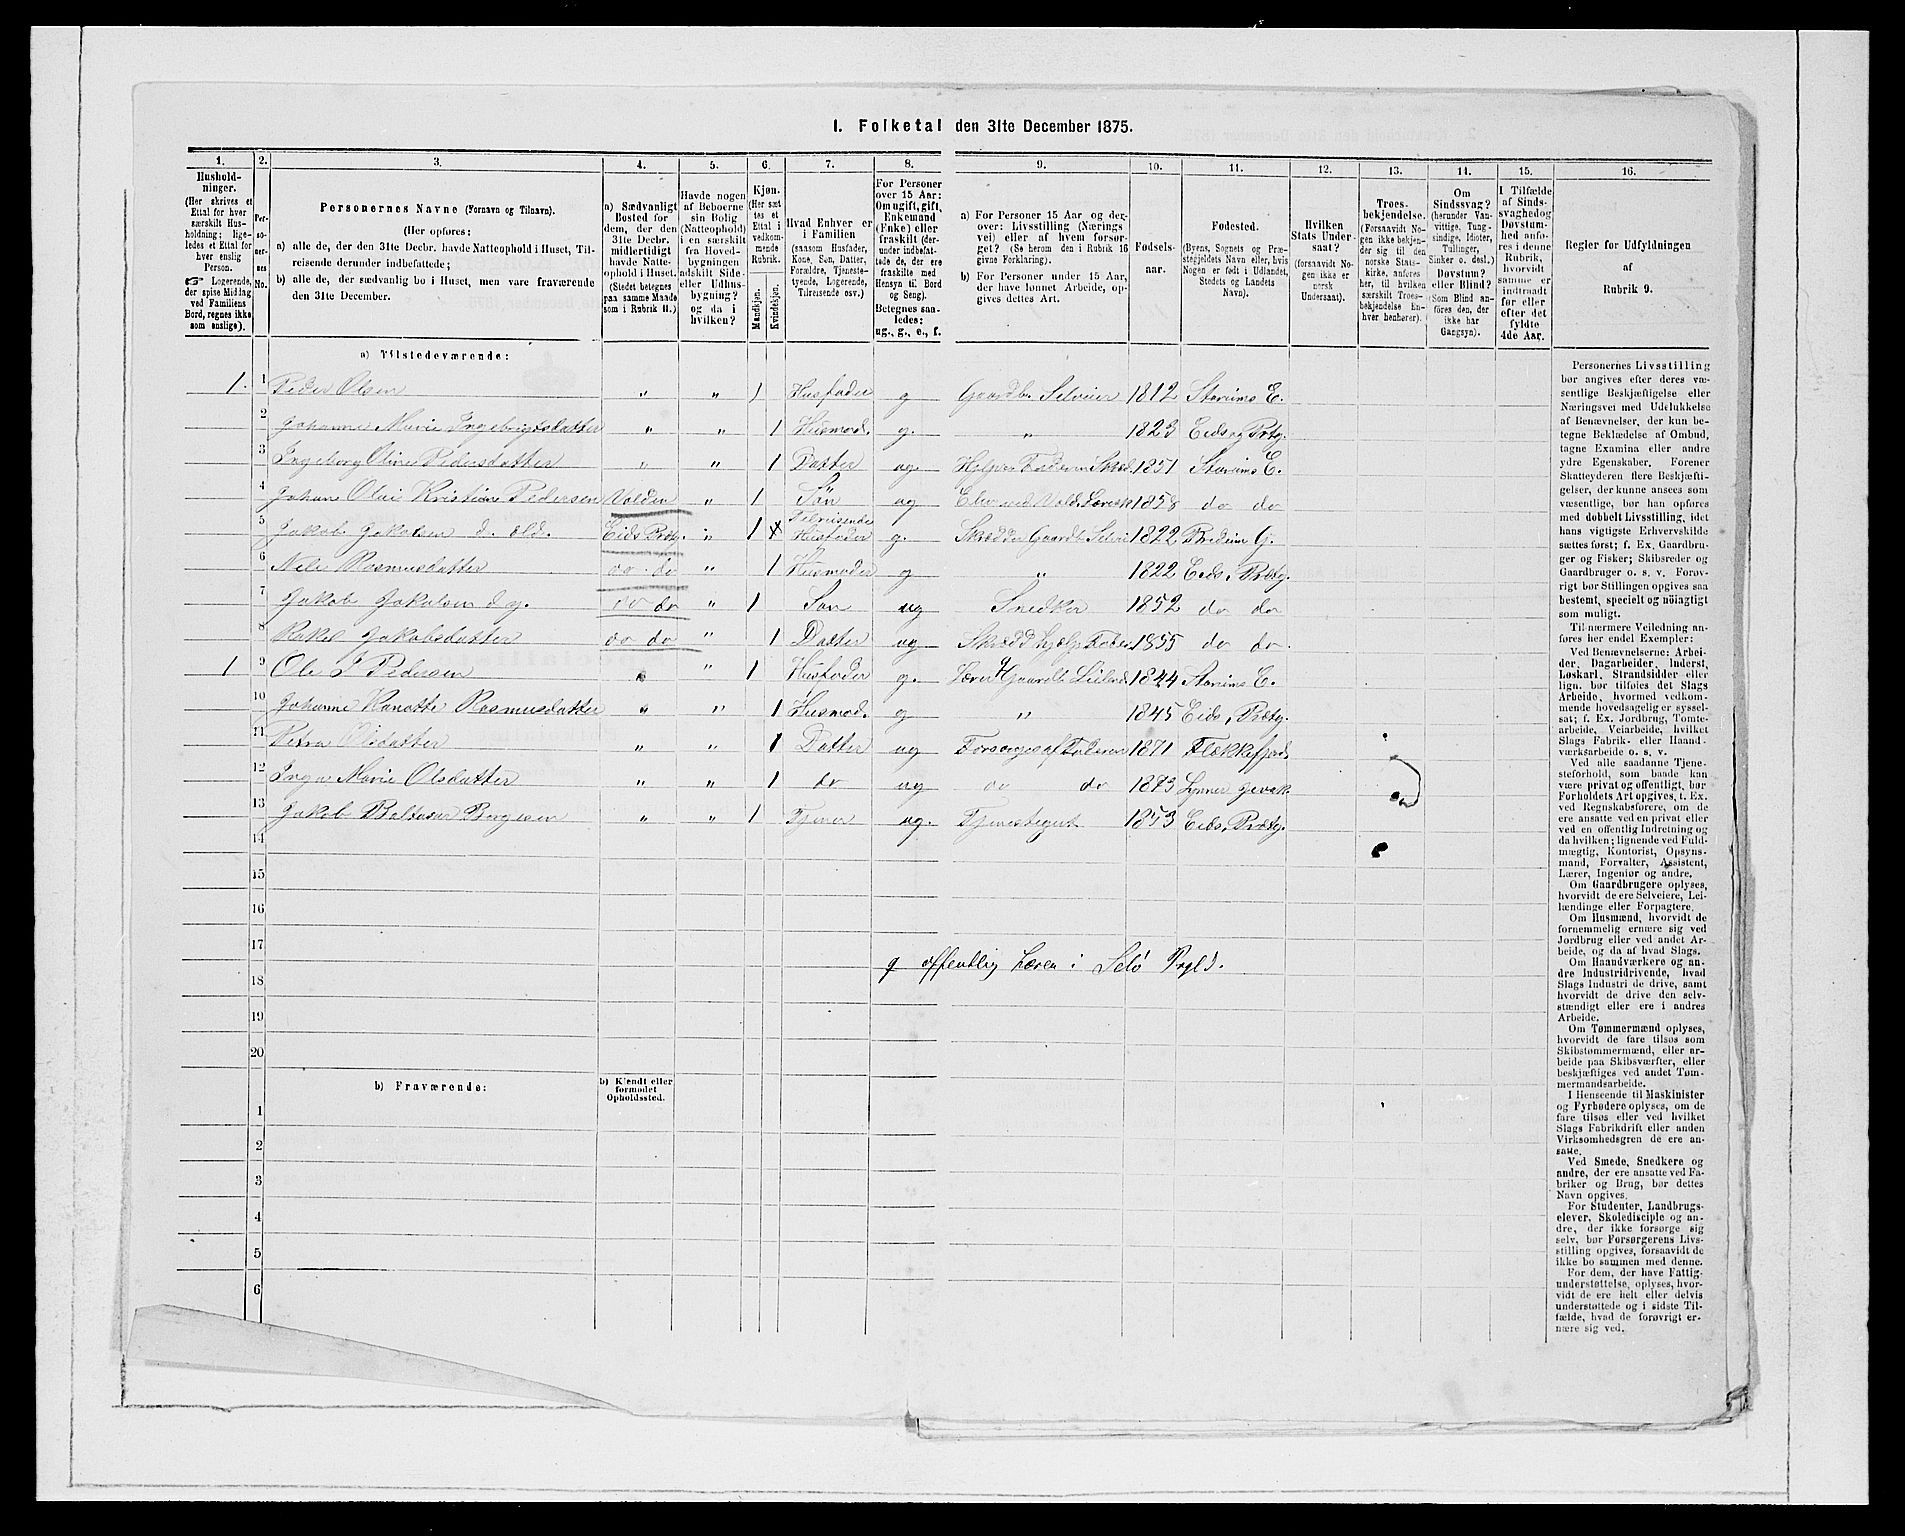 1. Folketal den 31te December 1875.
1. 2. 3. 4. 5. 6. 7. 8. 9. 10. 11. 12. 13. 14. 15. 16.
Hushold-
ninger.
(Her skrives et
Ettal for hver
særskilt Hus-
holdning; lige-
ledes et Ettal for
hver enslig
Person.
☞ Logerende,
der spise Middag
ved Familiens
Bord, regnes ikke
som enslige).
Per-
so-
ner-
nes
No.
Personernes Navne (Fornavn og Tilnavn).
(Her opføres:
a) alle de, der den 31te Decbr. havde Natteophold i Huset, Til-
reisende derunder indbefattede;
b) alle de, der sædvanlig bo i Huset, men vare fraværende
den 31te December.
a) Sædvanligt
Bosted for
dem, der den
31te Decbr.
midlertidigt
havde Natte-
ophold i Huset.
(Stedet betegnes
paa samme Maade
som i Rubrik 11.)
Havde nogen
af Beboerne
sin Bolig
(Natteophold)
i en særskilt
fra Hoved-
bygningen
adskilt Side-
eller Udhus-
bygning?
og da i
hvilken?
Kjøn.
(Her sæt
tes et
Ettal i
vedkom-
mende
Rubrik.
Mandkjøn.
Kvindekjøn.
Hvad Enhver er
i Familien
(saasom Husfader,
Kone, Søn, Datter,
Forældre, Tjeneste-
tyende, Logerende,
Tilreisende osv.)
For Personer
over 15 Aar:
Om ugift, gift,
Enkemand
(Enke) eller
fraskilt (der-
under indbefat-
tede de, der ere
fraskilte med
Hensyn til Bord
og Seng).
Betegnes saa-
ledes:
ug., g., e., f.
a) For Personer 15 Aar og der-
over: Livsstilling (Nærings
vei) eller af hvem forsør-
get? (Se herom den i Rubrik 16
givne Forklaring).
b) For Personer under 15 Aar,
der have lønnet Arbeide, op-
gives dettes Art.
Fødsels-
aar.
Fødested.
(Byens, Sognets og Præ-
stegjeldets Navn eller, hvis
Nogen er født i Udlandet,
Stedets og Landets
Navn).
Hvilken
Stats Under-
saat?
(forsaavidt No-
gen ikke er
norsk
Undersaat).
Troes-
bekjendelse.
(Forsaavidt No-
gen ikke bekjen-
der sig til den
norske Stats-
kirke, anføres
her, til hvilken
særskilt Troes-
bekjendelse En-
hver henhører).
Om
Sindssvag?
(herunder Van-
vittige, Tung-
sindige, Idioter,
Tullinger,
Sinker o. desl.)
Døvstum?
eller Blind?
(Som Blind an-
føres den, der
ikke har
Gangsyn).
I Tilfælde
af Sinds-
svaghedog
Døvstum-
hed anfø-
res i denne
Rubrik,
hvorvidt
samme er
indtraadt
før eller
efter det
fyldte
4de Aar.
Regler for Udfyldningen
af
Rubrik 9.
a) Tilstedeværende:
1. 1 Peder Olsen " " 1 Husfader g Gaardbr Selveier 1812 Starims E.
2 Johanne Marie Ingebrigtsdatter " " 1 Husmod. g. " 1823 Eids Prtg.
3 Ingeborg Oline Pedersdatter " " 1 Datter ug. 1851 Starims E.
4 Johan Olai Kristian Pedersen Volden " 1 Søn ug 1858 do do
5 Jakob Jakobsen d. eld. Eids Prtg. " 1 Tilreisende Husfader g. Skrædder Gaardbr Selvei 1822 Bredeim G.
6 Nele Rasmusdatter do. do " 1 Husmoder g " 1822 Eids, Prætg.
7 Jakob Jakobsen d y. do do " 1 Søn ug Snedker 1852 do do
8 Rakel Jakobsdatter do do " 1 Datter ug 1855 do do.
1 9 Ole J Pedersen " " 1 Husfader g. Lærer Gaardbr Leilend 1844 Starims E.
10 Johanne Hanatte Rasmusdatter " " 1 Husmod. g " 1845 Eids, Prætg.
11 Petra Olsdatter " " 1 Datter ug Forsørges af Faderen 1871 Flækkefjord.
12 Inga Marie Olsdatter " " 1 do ug do do 1873
13 Jakob Baltasar Børgesen " " 1 Tjener ug. Tjenestegut 1853 Eids, Prætg.
14
15
16
17
q offentlig Lærer i Selø Prgld.
18
19
20
b) Fraværende:
b) Kjendt eller
formodet
Opholdssted.
1
2
3
4
5
6
Personernes Livsstilling
bør angives efter deres væ-
sentlige Beskjæftigelse eller
Næringsvei med Udelukkelse
af Benævnelser, der kun be-
tegne Beklædelse af Ombud,
tagne Examina eller andre
ydre Egenskaber. Forener
Skatteyderen flere Beskjæfti-
gelser, der kunne ansees som
væsentlige, bør han opføres
med dobbelt Livsstilling, idet
hans vigtigste Erhvervskilde
sættes først; f. Ex. Gaardbru-
ger og Fisker; Skibsreder og
Gaardbruger o. s. v. Forøv-
rigt bør Stillingen opgives saa
bestemt, specielt og nöiagtigt
som muligt.
Til nærmere Veiledning an-
føres her endel Exempler:
Ved Benævnelserne: Arbei-
der, Dagarbeider, Inderst,
Løskarl, Strandsidder eller
lign. bør tilføies det Slags
Arbeide, hvormed vedkom-
mende hovedsagelig er syssel-
sat; f. Ex. Jordbrug, Tomte-
arbeide, Veiarbeide, hvilket
Slags Fabrik- eller Haand-
værksarbeide o. s. v.
Ved alle saadanne Tjene-
steforhold, som baade kan
være privat og offentligt, bør
Forholdets Art opgives, t. Ex.
ved Regnskabsførere, om de
ere ansatte ved en privat eller
ved en offentlig Indretning og
da hvilken; lignende ved Fuld-
mægtig, Kontorist, Opsyns-
mand, Forvalter, Assistent,
Lærer, Ingeniør og andre.
Om Gaardbrugere oplyses,
hvorvidt de ere Selveiere, Lei-
lændinge eller Forpagtere.
Om Husmænd, hvorvidt de
fornemmelig ernære sig ved
Jordbrug eller ved andet Ar-
beide, og da af hvad Slags.
Om Haandværkere og an-
dre Industridrivende, hvad
Slags Industri de drive, samt
hvorvidt de drive den selv-
stændigt eller ere i andres
Arbeide.
Om Tømmermænd oplyses,
hvorvidt de fare tilsøs som
Skibstømmermænd, eller ar-
beide paa Skibsværfter, eller
beskjæftiges ved andet Tøm-
mermandsarbeide.
I Henseende til Maskinister
og Fyrbødere oplyses, om de
fare tilsøs eller ved hvilket
Slags Fabrikdrift eller anden
Virksomhedsgren de ere an-
satte.
Ved Smede, Snedkere og
andre, der ere ansatte ved Fa-
briker og Brug, bør dettes
Navn opgives.
For Studenter, Landbrugs-
elever, Skoledisciple og an-
dre, der ikke forsørge sig
selv, bør Forsørgerens Livs-
stilling opgives, forsaavidt de
ikke bo sammen med denne.
For dem, der have Fattig-
understøttelse, oplyses, hvor-
vidt de ere helt eller delvis
understøttede og i sidste Til-
fælde, hvad de forøvrigt er-
nære sig ved.